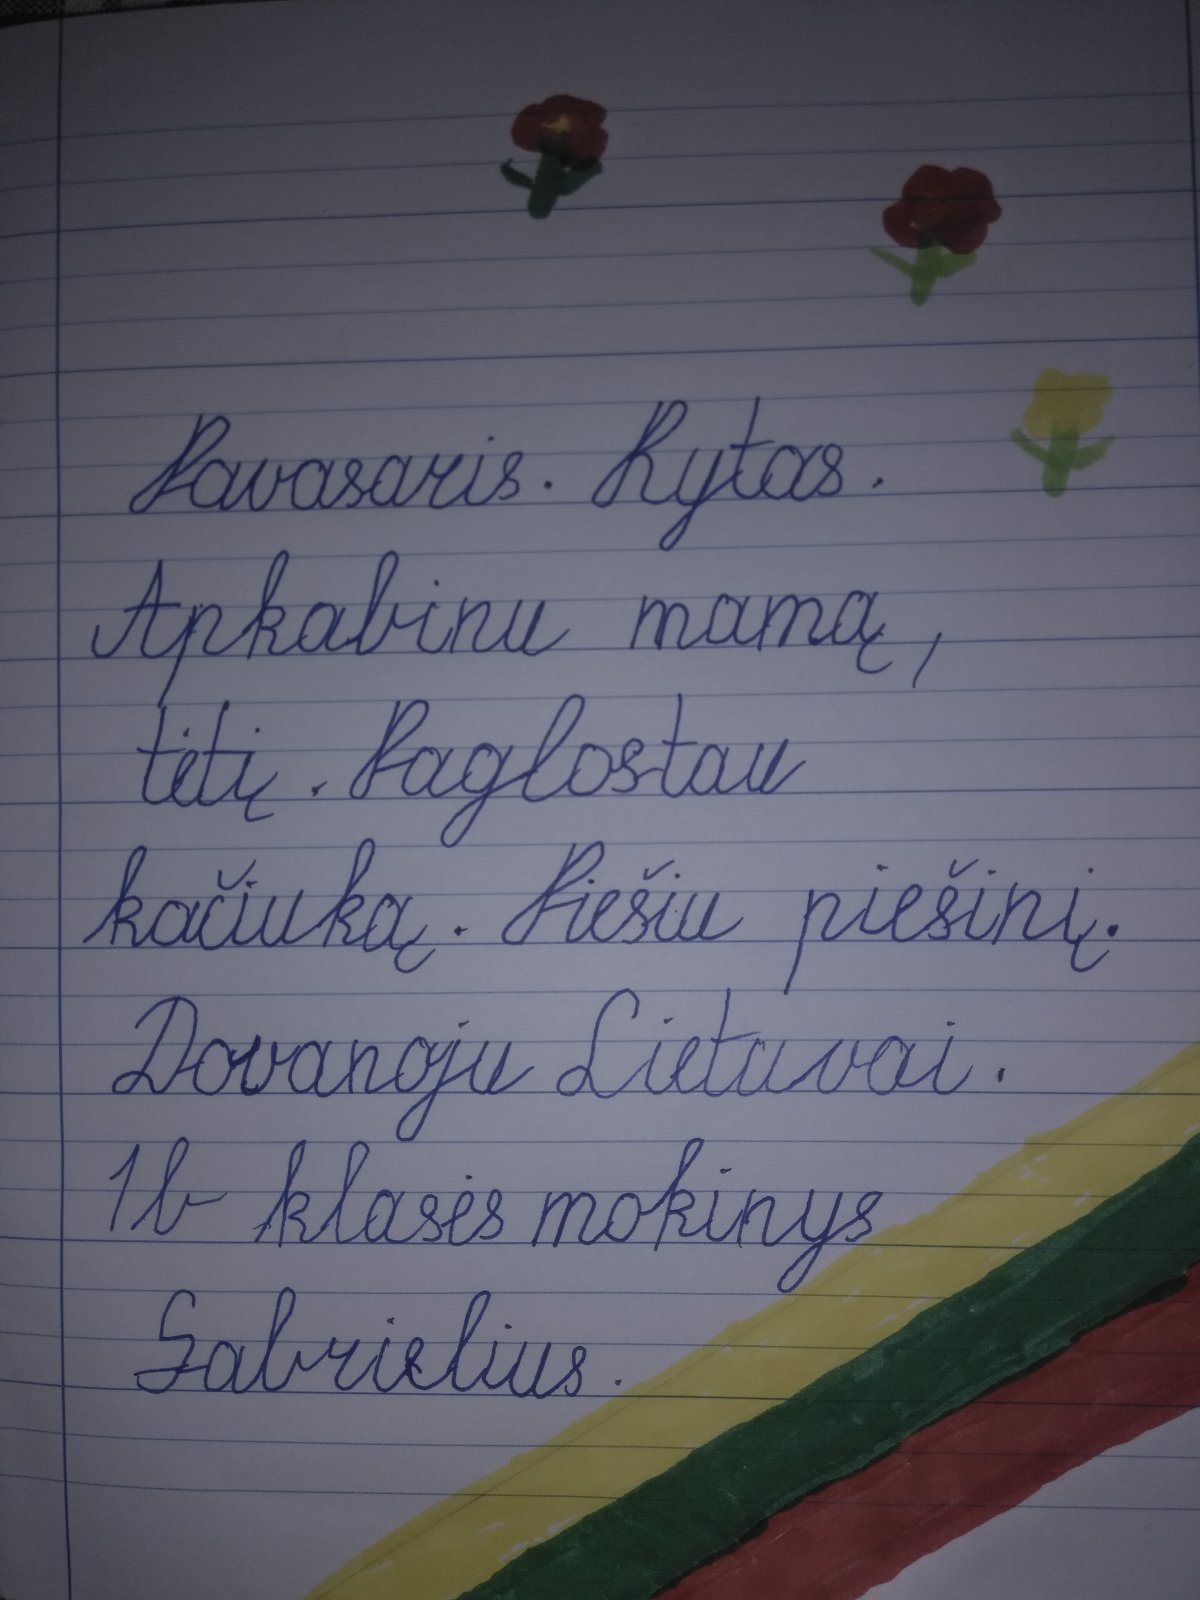 Pavasaris. Rytas.
Apkabinu mamą,
tėtį. Paglostau
kačiuką. Piešiu piešinį.
Dovanoju Lietuvai.
1b klasės mokinys
Gabrielius.